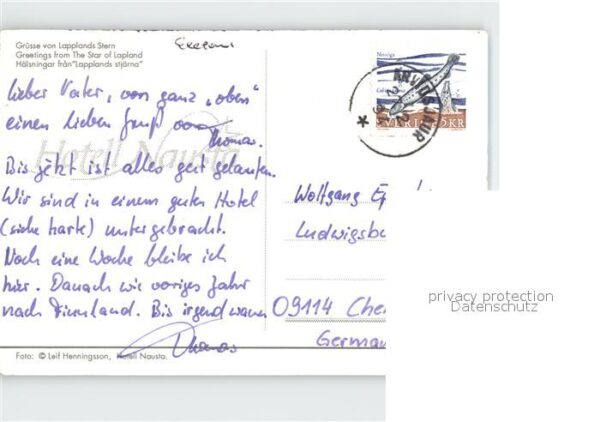 Grüsse von Lapplands Stern
Greetings from The Star of Lapland
Hälsningar från "Lapplands stjärna"
Hotell Nausta
lieber Vater, von ganz „oben"
einen lieben Gruß von
Thomas.
Bis jetzt ist alles gut gelaufen.
Wir sind in einem guten Hotel
(siehe Karte) untergebracht.
Noch eine Woche bleibe ich
hier. Danach wie voriges Jahr
nach Finnland. Bis irgend wann
Thomas
Foto: © Leif Henningsson, Hotell Nausta.
SVERIGE 5 KR
ARVIDSJAUR
Wolfgang
Ludwigsbu
09114 Che
German
privacy protection
Datenschutz